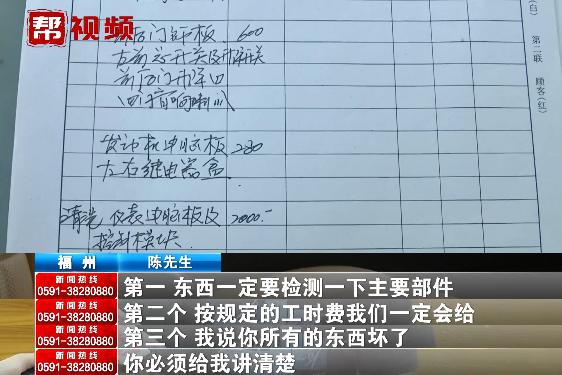 帮视频
前后门饰板 600
左前总开关及升降开关
前后门升降
四门音响喇叭
发动机电脑板 280
左右继电器盒
清洗仪表电脑板及 2000.-
控制模块
(白)
第二联
顾客(红)
福州 陈先生
新闻热线
0591-38280880
第一 东西一定要检测一下主要部件
新闻热线
0591-38280880
第二个 按规定的工时费我们一定会给
新闻热线
0591-38280880
第三个 我说你所有的东西坏了
新闻热线
0591-38280880
你必须给我讲清楚